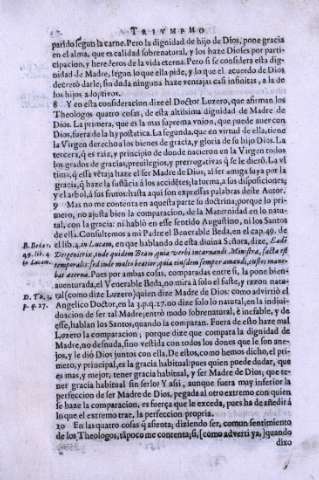 TRIVMPHO
parido segun la carne. Pero la dignidad de hijo de Dios, pone gracia
en el alma, que es calidad sobrenatural, y los haze Dioses por parti-
cipacion, y herederos de la vida eterna. Pero si se considera esta dig-
nidad de Madre, segun lo que ella pide, y lo que el acuerdo de Dios
decretò darle, sin duda ninguna haze ventajas casi infinitas, a la de
los hijos adoptivos.
8 Y en esta consideracion dize el Doctor Luzero, que afirman los
Theologos quatro cosas, de esta altissima dignidad de Madre de
Dios. La primera, que es la mas suprema vnion, que puede aver con
Dios, fuera de la hypostatica. La segunda, que en virtud de ella, tiene
la Virgen derecho a los bienes de gracia, y gloria de su hijo Dios. La
tercera, q̃ es raiz, y principio de donde nacieron en la Virgen todos
los grados de gracias, preuilegios, y prerrogativas q̃ se le diero. La vl
tima, q̃ ella vẽtaja haze el ser Madre de Dios, al ser amiga suya por la
gracia, q̃ haze la sustãcia a los accidẽtes, la forma, a sus disposiciones;
y el arbol, à sus frutos hasta aqui son expressas palabras deste Autor.
9 Mas no me contenta en aquesta parte su doctrina, porque lo pri-
mero, no ajusta bien la comparacion, de la Maternidad en lo natu-
ral, con la gracia: ni habló en esse sentido Augustino, ni los Santos
de ella. Consultemos a mi Padre el Venerable Beda, en el cap. 49. de
B. Beda,
el lib. 4. in Lucam, en que hablando de esta divina Señora, dize, Eadẽ
49. lib. 4
Dei genitrix, inde quidem Beata quia verbi incarnandi Ministra, facta est
in Lucam.
temporalis; sed inde multo beatior, quia eiusdem semper amandi, custos mane-
bat æterna. Pues por ambas cosas, comparadas entre si, la pone bien-
aventurada, el Venerable Beda, no mira à solo el fuste, y razon natu-
D. Th. 3.
tal (como dize Luzero) quien dize Madre de Dios: como advirtió el
p. q. 27.
Angelico Doctor, en la 3. p. q. 27. no dize solo lo natural, en la indiui-
duacion de ser tal Madre; entró modo sobrenatural, è inefable, y de
esse, hablan los Santos, quando la comparan. Fuera de esto haze mal
Luzero la comparacion; porque dize compara la dignidad de
Madre, no desnuda, sino vestida con todos los dones que le son ane-
jos, y le dió Dios juntos con ella. De estos, como hemos dicho, el pri-
mero, y principal, es la gracia habitual: pues quien puede dudar, que
es mas, y mejor, tener gracia habitual, y ser Madre de Dios; que te-
ner gracia habitual sin serlo? Y assi, aunque fuera muy inferior la
perfeccion de ser Madre de Dios, pegada al otro extremo con quien
se haze la comparacion, es fuerça que le exceda, pues ha de añedirà
lo que el extremo trae, la perfeccion propria.
10 En las quatro cosas q̃ assienta, diziendo ser, comun sentimiento
de los Theologos, tãpoco me contenta; si, [como advertí ya,] quando
dixo